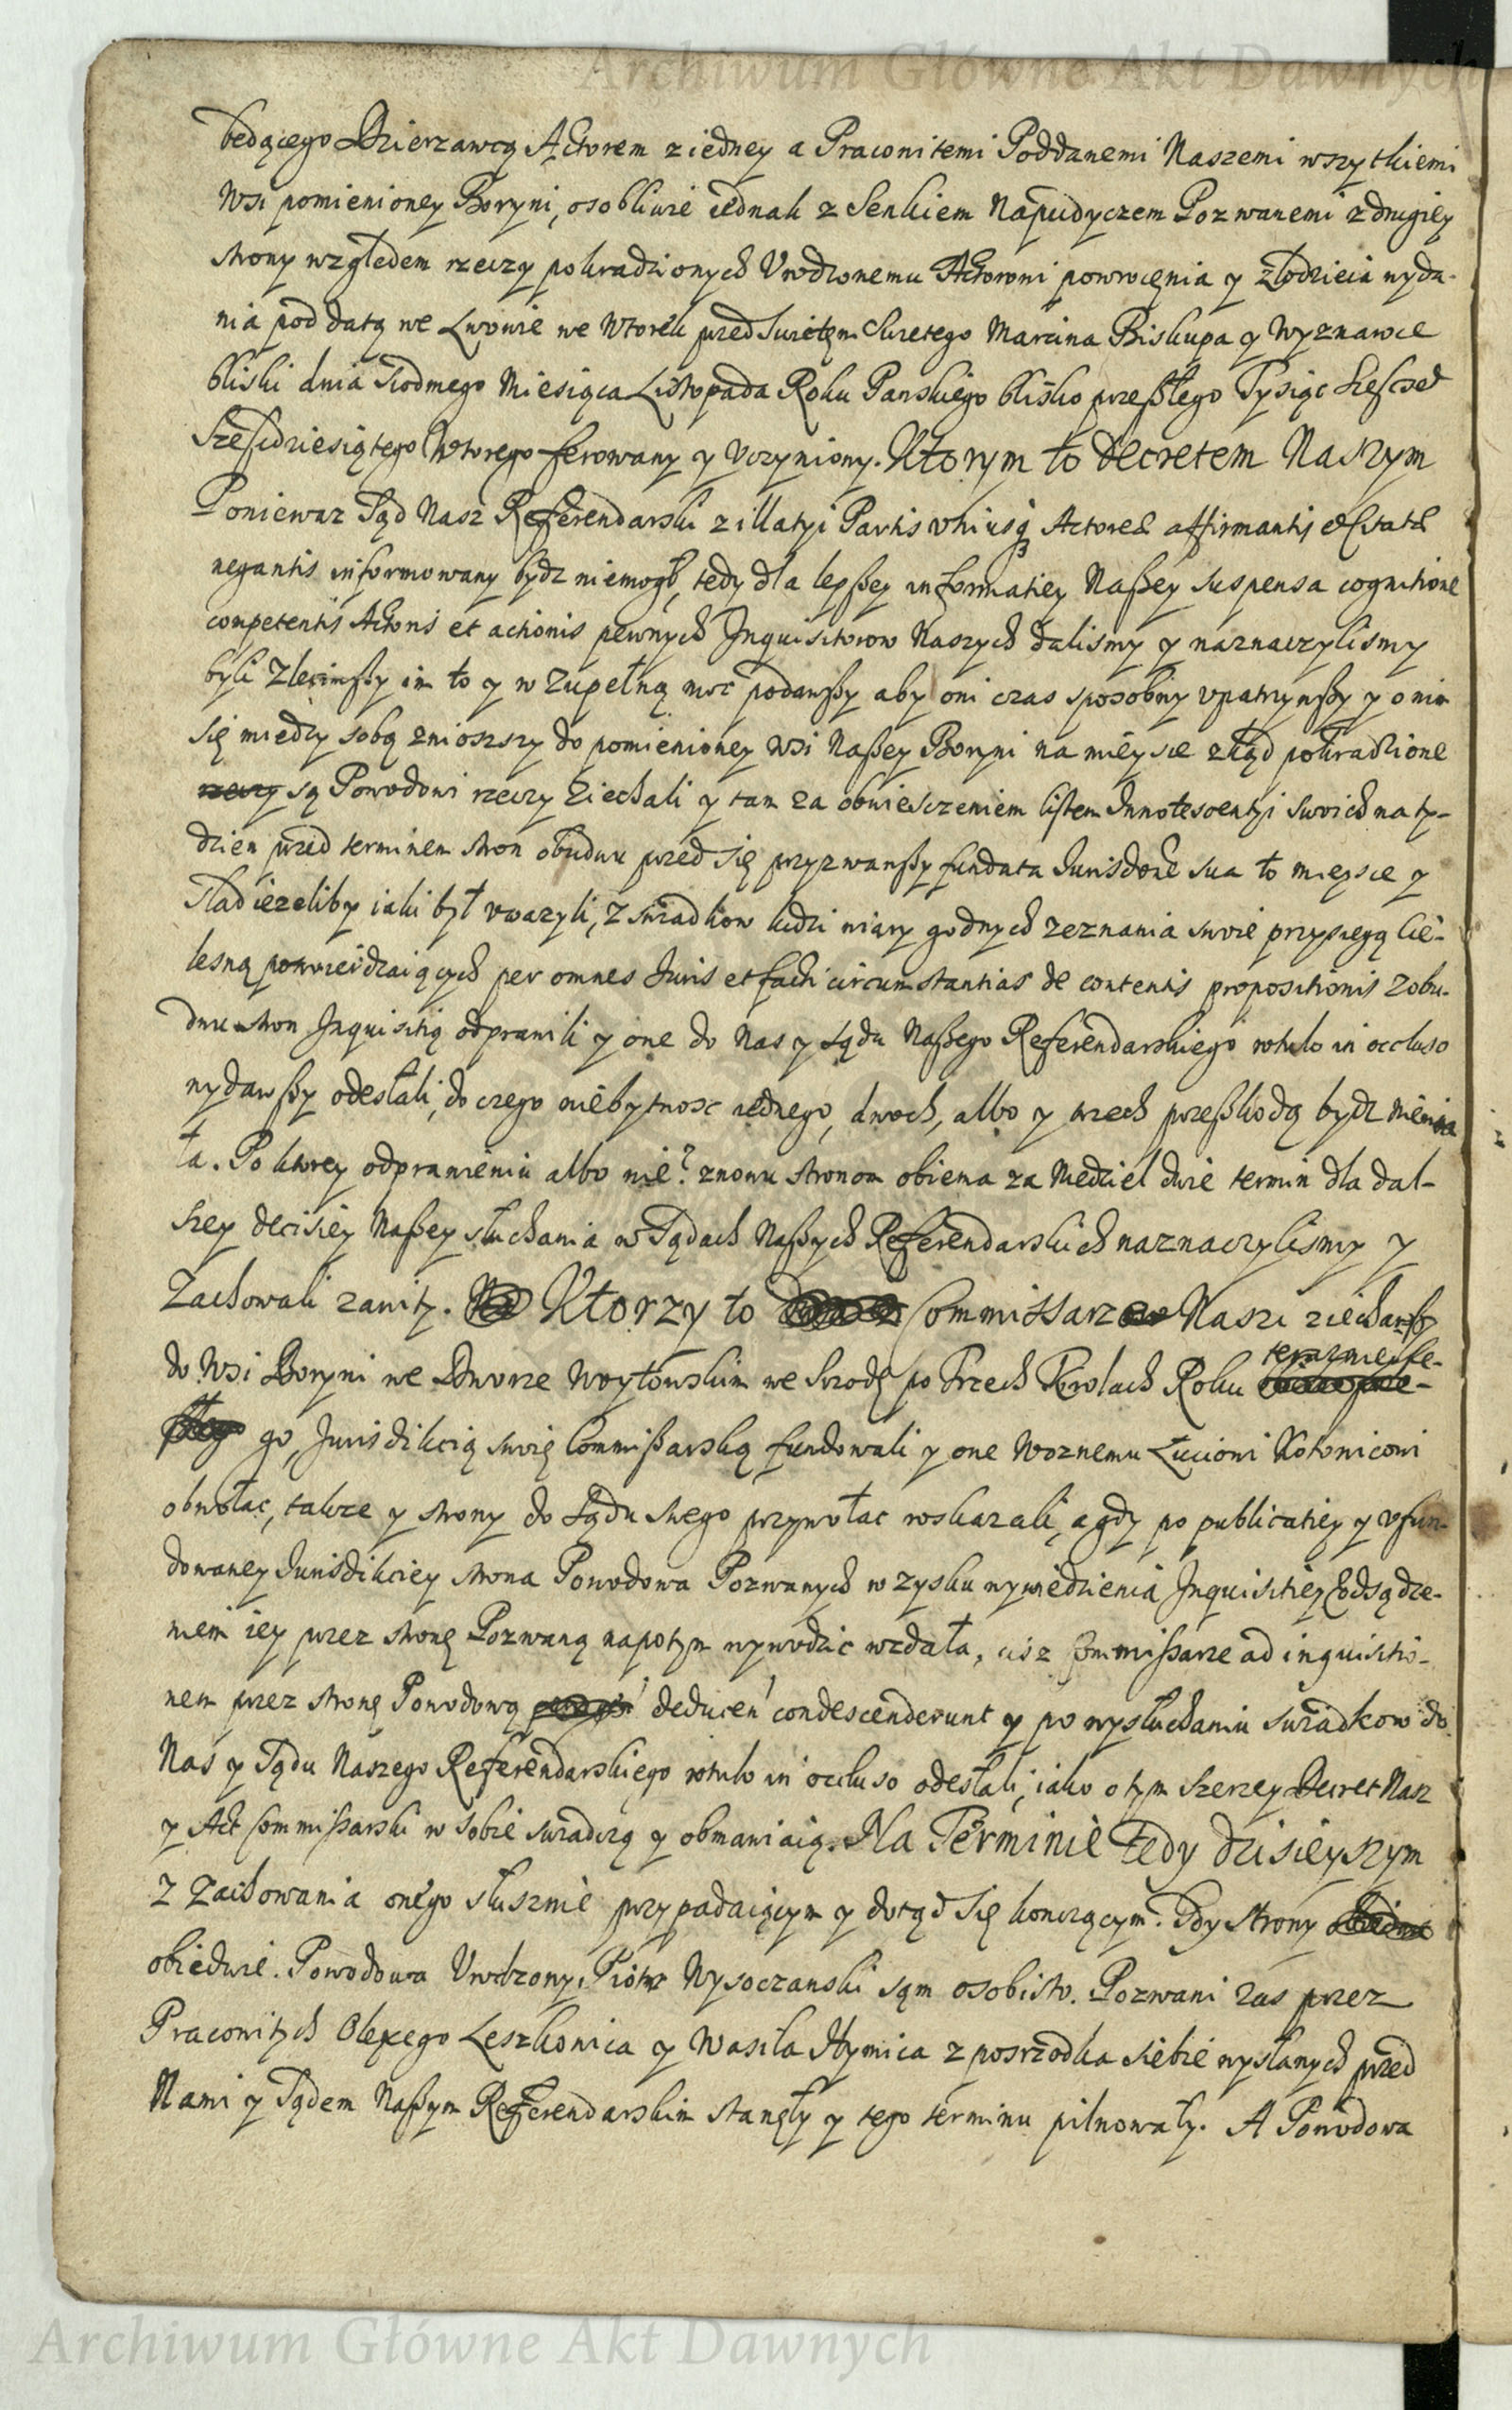 Archiwum Główne Akt Dawnych
bedącego Dzierzawcą Actorem z iedney a Pracowitemi Poddanemi Naszemi wszytkiemi
Wsi pomienioney Boryni, osobliwie iednak z Senkiem Napudyczem Pozwanemi z drugiey
strony względem rzeczy pokradzionych Vrodzonemu Actorowi powrocęnia y złodzieia wyda-
nia pod datą we Lwowie we Wtorek przed Swiętem Swietego Marcina Biskupa y Wyznawce
bliski dnia siodmego Miesiąca Listopada Roku Panskiego blisko przeßłego Tysiąc Szescset
Szescdziesiątego Wtorego ferowany y vczyniony. Ktorym to decretem Naszym
Poniewaz Sąd Nasz Referendarski z illatyi Partis vniusq Actorea affirmantis et Citatae
negantis informowany bydz niemogł, tedy dla lepßey informatiey Naßey suspensa cognitione
competentis Actoris et actionis pewnych Inquisitorow Naszych dalismy y naznaczylismy
byli Zleciwßy im to y w Zupełną moc podawßy aby oni czas sposobny vpatrzywßy y onim
się miedzy sobą znioszszy do pomienioney wsi Naßey Boryni na mieysce zkąd pokradzione
rzeczy są Powodowi rzeczy ziechali y tam za obwiesczeniem listem Innotescentyi swoich na ty-
dzien przed terminem stron obudwu przed się przyzwawßy fundata Iurisdone sua to mieysce y
slad iezeliby iaki był vwazyli, z swiadkow ludzi wiary godnych zeznania swoie przysiegą cie-
lesną potwierdzaiących per omnes Iuris et facti circumstantias de contentis propositionis z obu-
dwu stron Inquisitią odprawili y one do Nas y Sądu Naßego Referendarskiego rotulo in occluso
wydawßy odesłali, do czego niebytnosc iednego, dwoch, albo y trzech przeßkodą bydz niemia
ła. Po ktorey odprawieniu albo nie? znowu stronom obiema za Niedziel dwie termin dla dal-
szey decisiey Naßey słuchania w Sądach Naßych Referendarskich naznaczylismy y
Zachowali zawity. Ktorzy to Commissarze Naszi ziechawßy
do Wsi Boryni we Dworze Woytowskim we Srodę po Trzech Krolach Roku teraznieysze-
go, Iurisdikcią swoię Commißarską fundowali y one Woznemu Łucioni Kotowicowi
obwołac, takze y strony do Sądu swego przywołac roskazali, a gdy po publicatiey y vfun-
dowaney Iurisdikciey strona Powodowa Pozwanych w zysku wywiedzienia Inquisitiey Eodsądze-
niem iey przez stronę Pozwaną napotym wywodzic wzdała, ciz Commißarze ad inquisitio-
nem przez stronę Powodową deducen condescenderunt y po wysłuchaniu swiadkow do
Nas y Sądu Naszego Referendarskiego rotulo in occluso odesłali, iako o tym szerzey Decret Nasz
y Act Commißarski w sobie swiadczą y obmawiaią. Na Terminie tedy dzisieyszym
z Zachowania onego słusznie przypadaiącym y dotąd się konczącym. Gdy strony
obiedwie. Powodowa Vrodzony Piotr Wysoczanski sąm osobisto. Pozwani zas przez
Pracowitych Olexego Leszkowica y Wasila Hymica z posrzodka siebie wysłanych przed
Nami y Sądem Naßym Referendarskim stanęły y tego terminu pilnowały. A Powodowa
Archiwum Główne Akt Dawnych